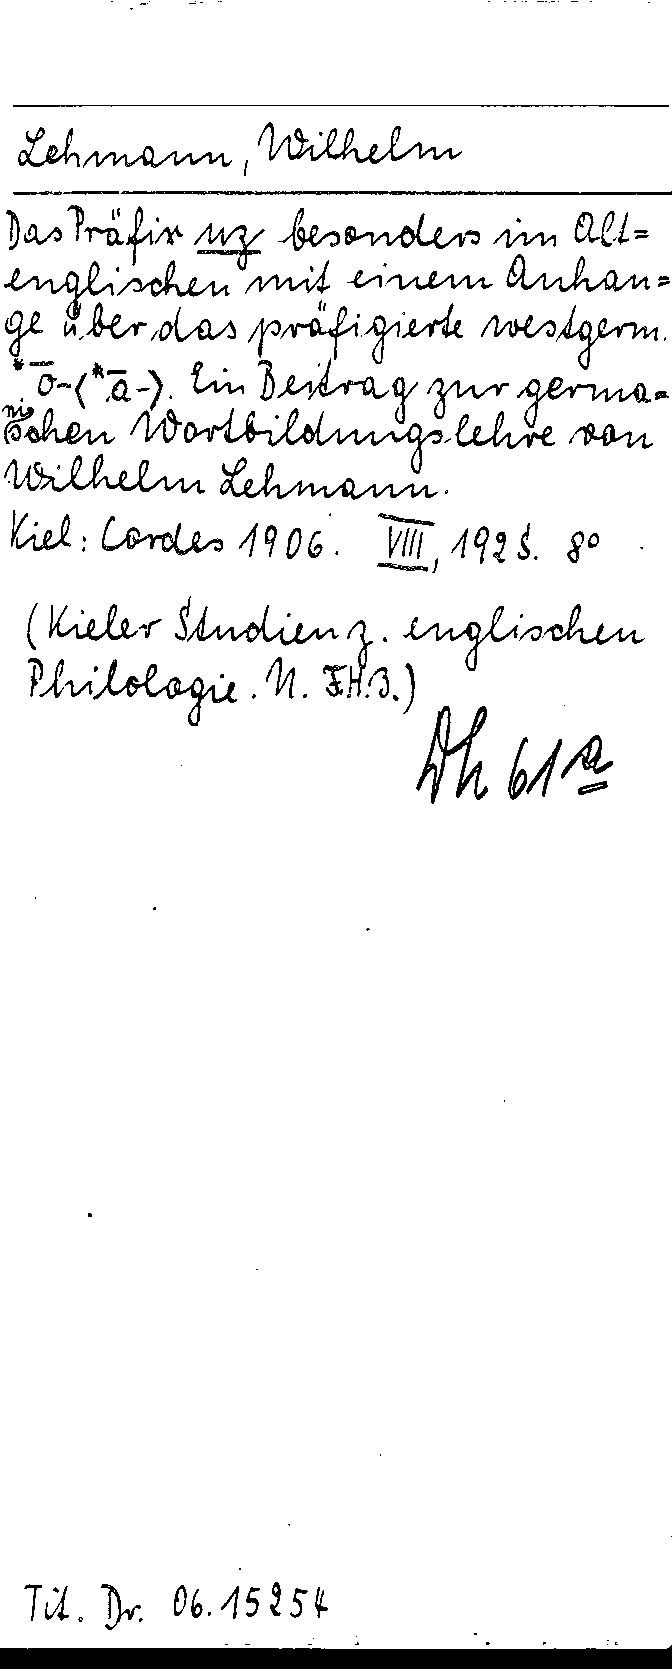 Lehmann, Wilhelm
Das Präfix uz besonders im Alt=
englischen mit einem Anhan=
ge über das präfigierte westgerm.
*ō-(*ā-). Ein Beitrag zur germa=
nischen Wortbildungslehre von
Wilhelm Lehmann.
Kiel: Cordes 1906. VIII, 192 S. 8°
(Kieler Studien z. englischen
Philologie. N. F. H. 3.)
Dh 61 a
Tit. Dr. 06.15254